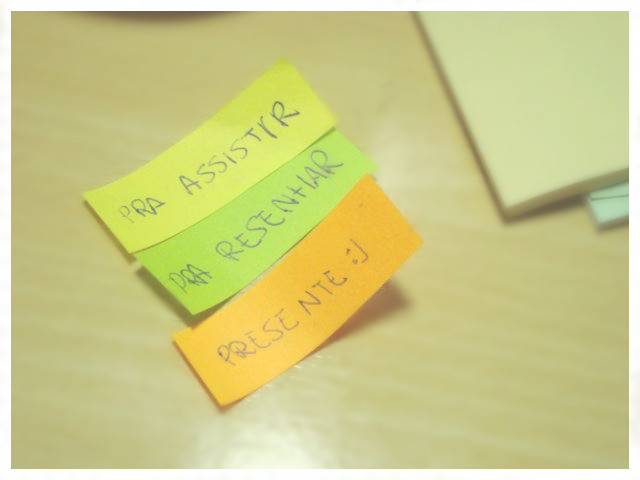 PRA ASSISTIR
PRA RESENHAR
PRESENTE :)